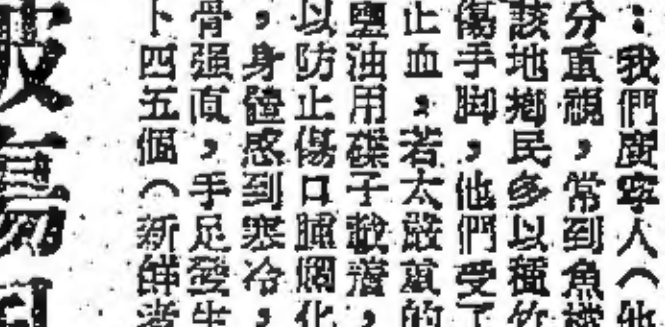 ：我們廣寧人（他
分重視，常到魚檔
該地鄉民多以種竹
傷手脚，他們受了
止血；若太嚴重的
鹽油用碟子載着，
以防止傷口腫爛化
，身體感到寒冷，
骨强直，手足發生
下四五個（新鮮者
破傷風